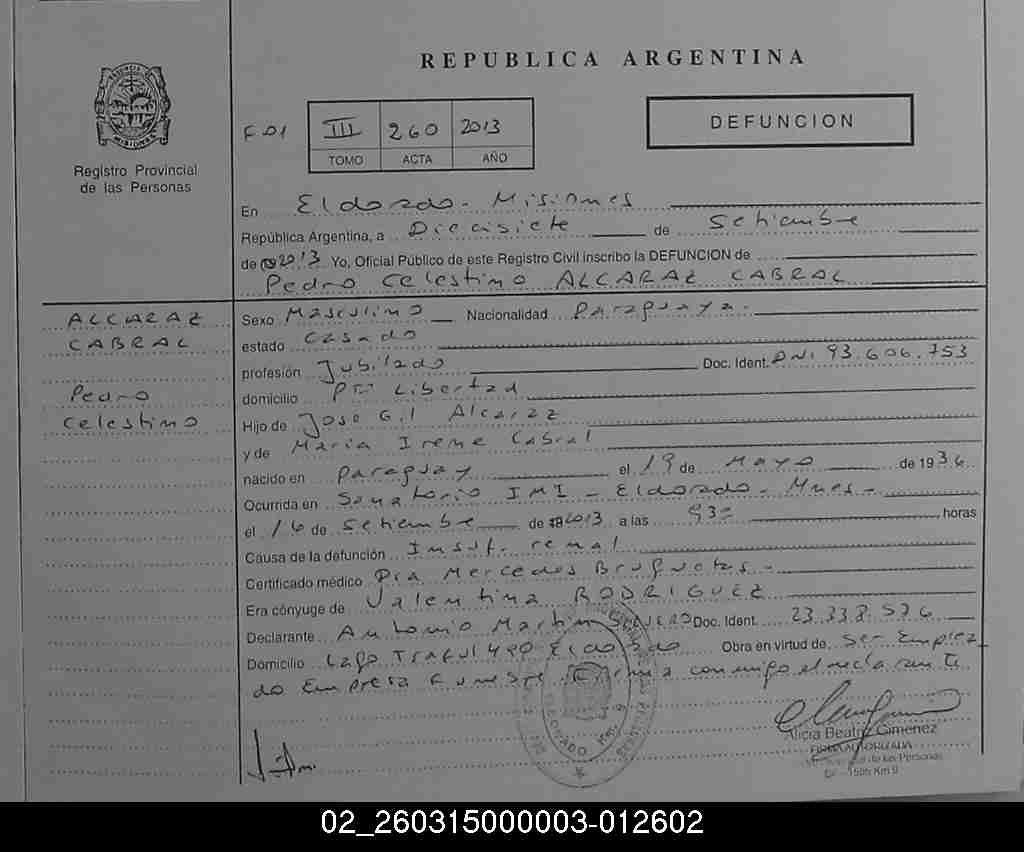 REPUBLICA ARGENTINA
PROVINCIA DE MISIONES
Registro Provincial
de las Personas
F-01
III 260 2013
TOMO ACTA AÑO
DEFUNCION
En Eldorado - Misiones
República Argentina, a Diecisiete de Setiembre
de 2013 Yo, Oficial Público de este Registro Civil inscribo la DEFUNCION de
Pedro Celestino ALCARAZ CABRAL
ALCARAZ
CABRAL
Pedro
Celestino
Sexo Masculino Nacionalidad Paraguaya.
estado Casado
profesión Jubilado Doc. Ident. DNI 93.606.753
domicilio Pto Libertad
Hijo de Jose Gil Alcaraz
y de Maria Irene Cabral
nacido en Paraguay el 19 de Mayo de 1936
Ocurrida en Sanatorio IMI - Eldorado - Mnes -
el 16 de Setiembre de 2013 a las 930 horas
Causa de la defunción Insuf. renal
Certificado médico Dra Mercedes -
Era cónyuge de Valentina RODRIGUEZ
Declarante Antonio Martin Doc. Ident. 23.338.576
Domicilio Lago 490 Eldorado Obra en virtud de Ser Emplea
do Empresa Funebre. Firma conmigo el declarante
ELDORADO
Alicia Beatriz Gimenez
FIRMA AUTORIZADA
de las Personas
1585 Km 9
02_260315000003-012602